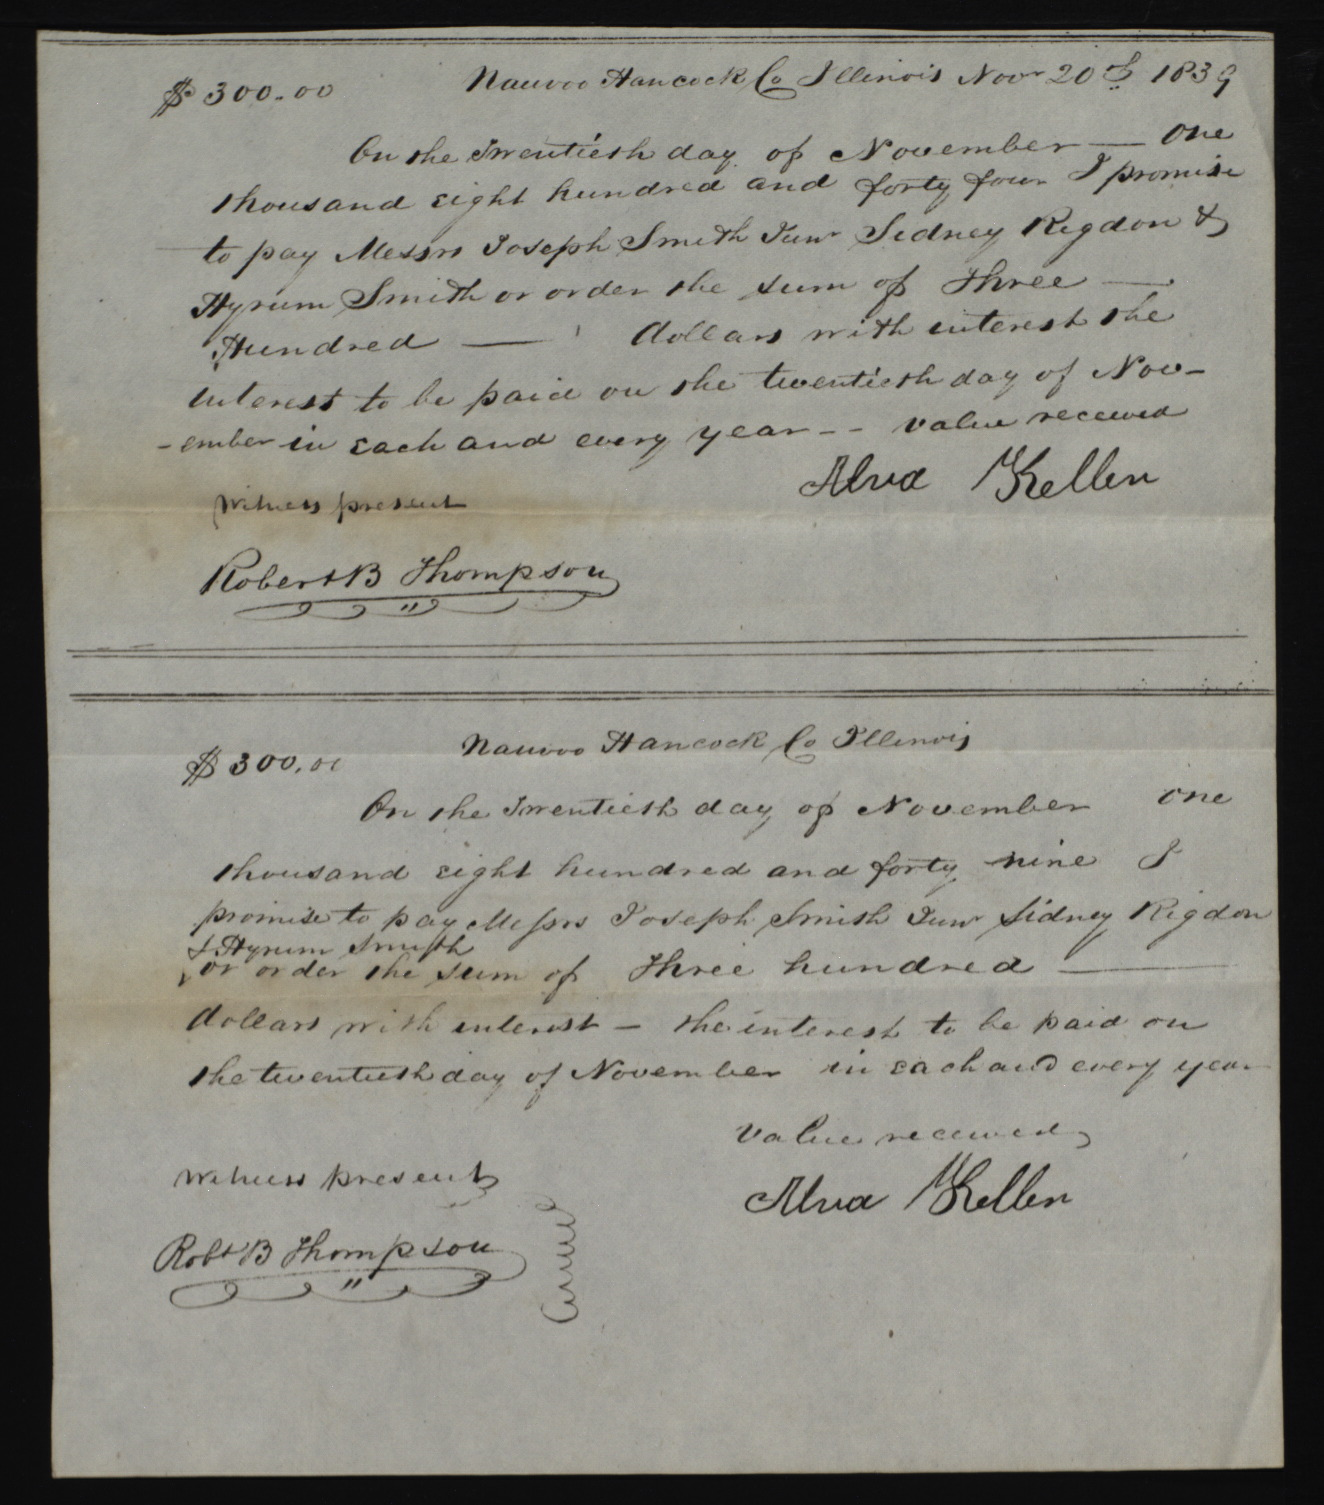 $300.00 Nauvoo Hancock Co Illinois Novr 20th 1839
On the Twentieth day of November — One
thousand eight hundred and forty four I promise
to pay Messrs Joseph Smith Junr Sidney Rigdon &
Hyrum Smith or order the sum of Three —
Hundred — dollars with interest the
interest to be paid on the twentieth day of Nov-
-ember in each and every year -- value received
Alva Kellen
Witness present
Robert B Thompson
$300.00 Nauvoo Hancock Co Illinois
On the Twentieth day of November one
thousand eight hundred and forty nine I
promise to pay Messrs Joseph Smith Junr Sidney Rigdon
& Hyrum Smith
or order the sum of Three hundred —
dollars with interest — the interest to be paid on
the twentieth day of November in each and every year
value received
Witness present
Alva Kellen
Robt B Thompson